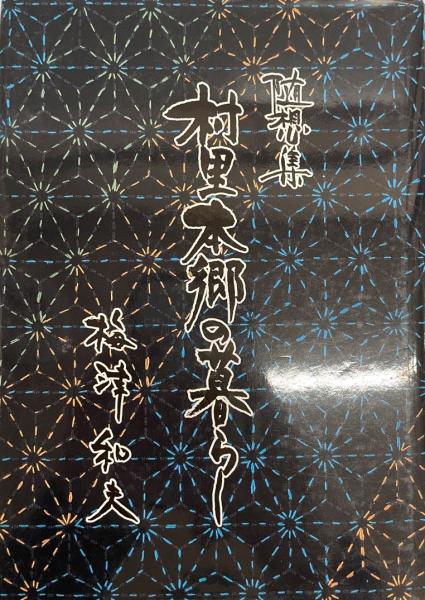 随想集
村里本郷の暮らし
梅津和夫